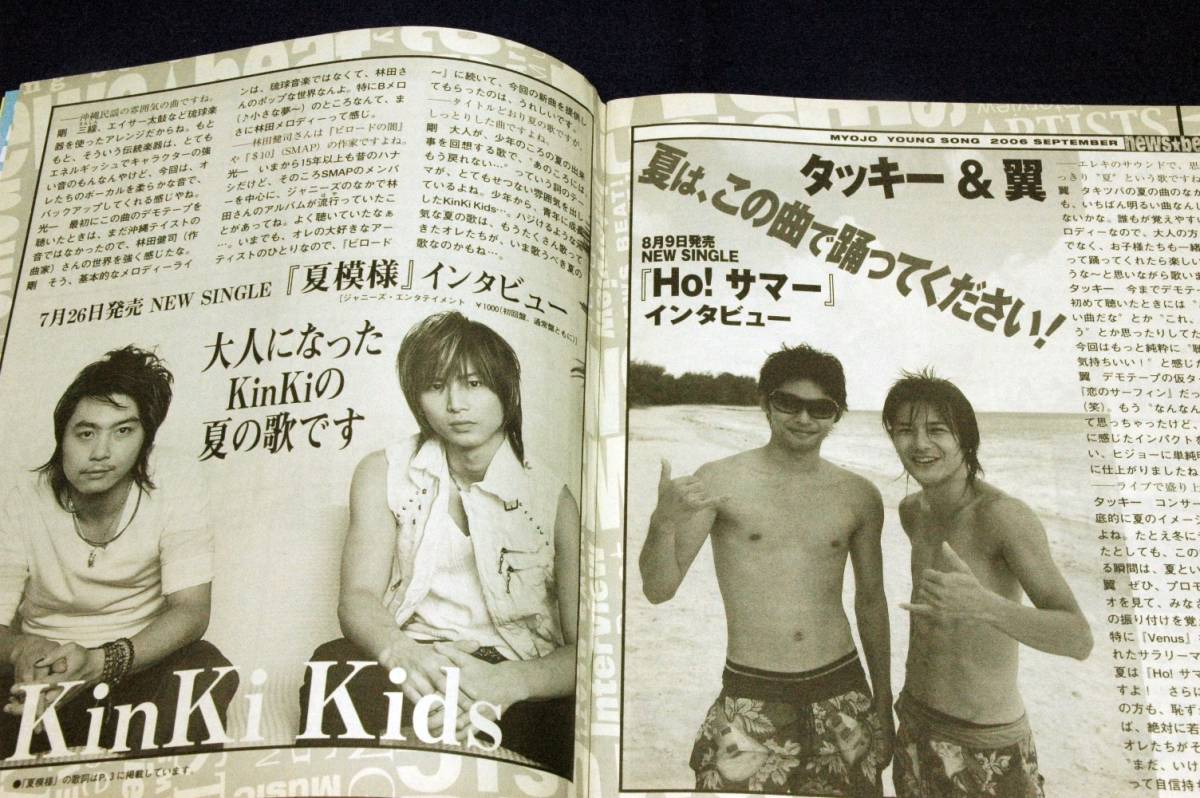 ——沖縄民謡の雰囲気の曲ですね。
剛　三線、エイサー太鼓など琉球楽
器を使ったアレンジだからね。もと
もと、そういう伝統楽器は、とても
エネルギッシュでキャラクターの強
い音のもんなんやけど、今回は、オ
レたちのボーカルを柔らかな音で、
バックアップしてくれる感じやね。
光一　最初にこの曲のデモテープを
聴いたときは、まだ沖縄テイストの
音ではなかったので、林田健司（作
曲家）さんの世界を強く感じたな。
剛　そう、基本的なメロディーライ
ンは、琉球音楽ではなくて、林田さ
んのポップな世界なんよ。特にBメロ
（♪小さな夢〜）のところなんて、ま
さに林田メロディーって感じ。
——林田健司さんは『ビロードの闇』
や『$10』（SMAP）の作家ですよね。
光一　いまから15年以上も昔のハナ
シだけど、そのころSMAPのメンバ
ーを中心に、ジャニーズのなかで林
田さんのアルバムが流行っていたこ
とがあってね。よく聴いていたなぁ
…。いまでも、オレの大好きなアー
ティストのひとりなので、『ビロード
〜』に続いて、今回の新曲を提供し
てもらったのは、うれしいです。
——タイトルどおり夏の歌ですが、
しっとりした曲ですよね。
剛　大人が、少年のころの夏の出来
事を回想する歌で、“あのころには
もう戻れない…”っていう詞のテー
マが、とてもせつない雰囲気を出し
てるよね。少年から、青年に成長
したKinKi Kids…。ハジけるような元
気な夏の歌は、もうたくさん歌って
きたオレたちが、いま歌うべき夏の
歌なのかもね…。
7月26日発売 NEW SINGLE『夏模様』インタビュー
［ジャニーズ・エンタテイメント　￥1000（初回盤、通常盤ともに）］
大人になった
KinKiの
夏の歌です
KinKi Kids
●『夏模様』の歌詞はP.3に掲載しています。
Interview
Music
ARTISTS
MYOJO YOUNG SONG 2006 SEPTEMBER
news★be
タッキー＆翼
夏は、この曲で踊ってください！
8月9日発売
NEW SINGLE
『Ho! サマー』
インタビュー
——エレキのサウンドで、思
っきり“夏”という歌ですね
翼　タキツバの夏の曲のなか
も、いちばん明るい曲なんじ
ないかな。誰もが覚えやすい
ロディーなので、大人の方
でなく、お子様たちも一緒
って踊ってくれたら楽しい
うな〜と思いながら歌いま
タッキー　今までデモテー
初めて聴いたときには“
い曲だな”とか“これ、
う”とか思ったりしてた
今回はもっと純粋に“聴
気持ちいい！”と感じた
翼　デモテープの仮タ
『恋のサーフィン』だっ
（笑）。もう“なんなん
て思っちゃったけど、
に感じたインパクトを
い、ヒジョーに単純明
に仕上がりましたね
——ライブで盛り上
タッキー　コンサー
底的に夏のイメー
よね。たとえ冬に
たとしても、この
る瞬間は、夏とい
翼　ぜひ、プロモ
オを見て、みな
の振り付けを覚
特に『Venus』
れたサラリーマ
夏は『Ho! サマ
すよ！　さらに
の方も、恥ず
ば、絶対に若
オレたちがそ
“まだ、いけ
って自信持